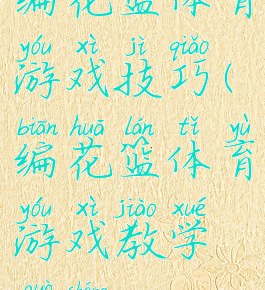 编花篮体育
yóu xì jì qiǎo
游戏技巧(
biān huā lán tǐ yù
编花篮体育
yóu xì jiào xué
游戏教学